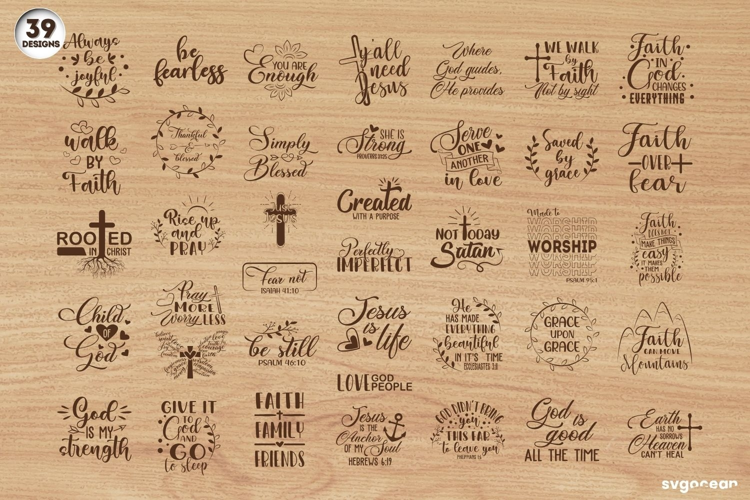 39
DESIGNS
Always
be
joyful
be
fearless
YOU ARE
Enough
y'all
need
Jesus
Where
God guides,
He provides
WE WALK
by
Faith
Not by sight
Faith
IN
God
CHANGES
EVERYTHING
walk
BY
Faith
Thankful
&
blessed
Simply
Blessed
SHE IS
Strong
PROVERBS 31:25
Serve
ONE
ANOTHER
in love
Saved
by
grace
Faith
OVER
fear
ROOTED
IN CHRIST
Rise up
and
PRAY
JESUS
Created
WITH A PURPOSE
Perfectly
IMPERFECT
NOT TODAY
Satan
Made to
WORSHIP
WORSHIP
WORSHIP
WORSHIP
WORSHIP
PSALM 95:1
Faith
DOES NOT
MAKE THINGS
easy
IT MAKES
THEM
possible
Fear not
ISAIAH 41:10
Child
of
God
Pray
MORE
Worry LESS
be still
PSALM 46:10
Jesus
is
life
He
HAS MADE
EVERYTHING
beautiful
IN IT'S TIME
ECCLESIASTES 3:11
GRACE
UPON
GRACE
Faith
CAN MOVE
Mountains
LOVE GOD
PEOPLE
God
IS MY
strength
GIVE IT
TO
God
AND
GO
to sleep
FAITH
FAMILY
FRIENDS
Jesus
IS THE
Anchor
OF MY Soul
HEBREWS 6:19
GOD DIDN'T BRING
you
THIS FAR
to leave you
God is
good
ALL THE TIME
Earth
HAS NO
SORROWS
Heaven
CAN'T HEAL
svgocean